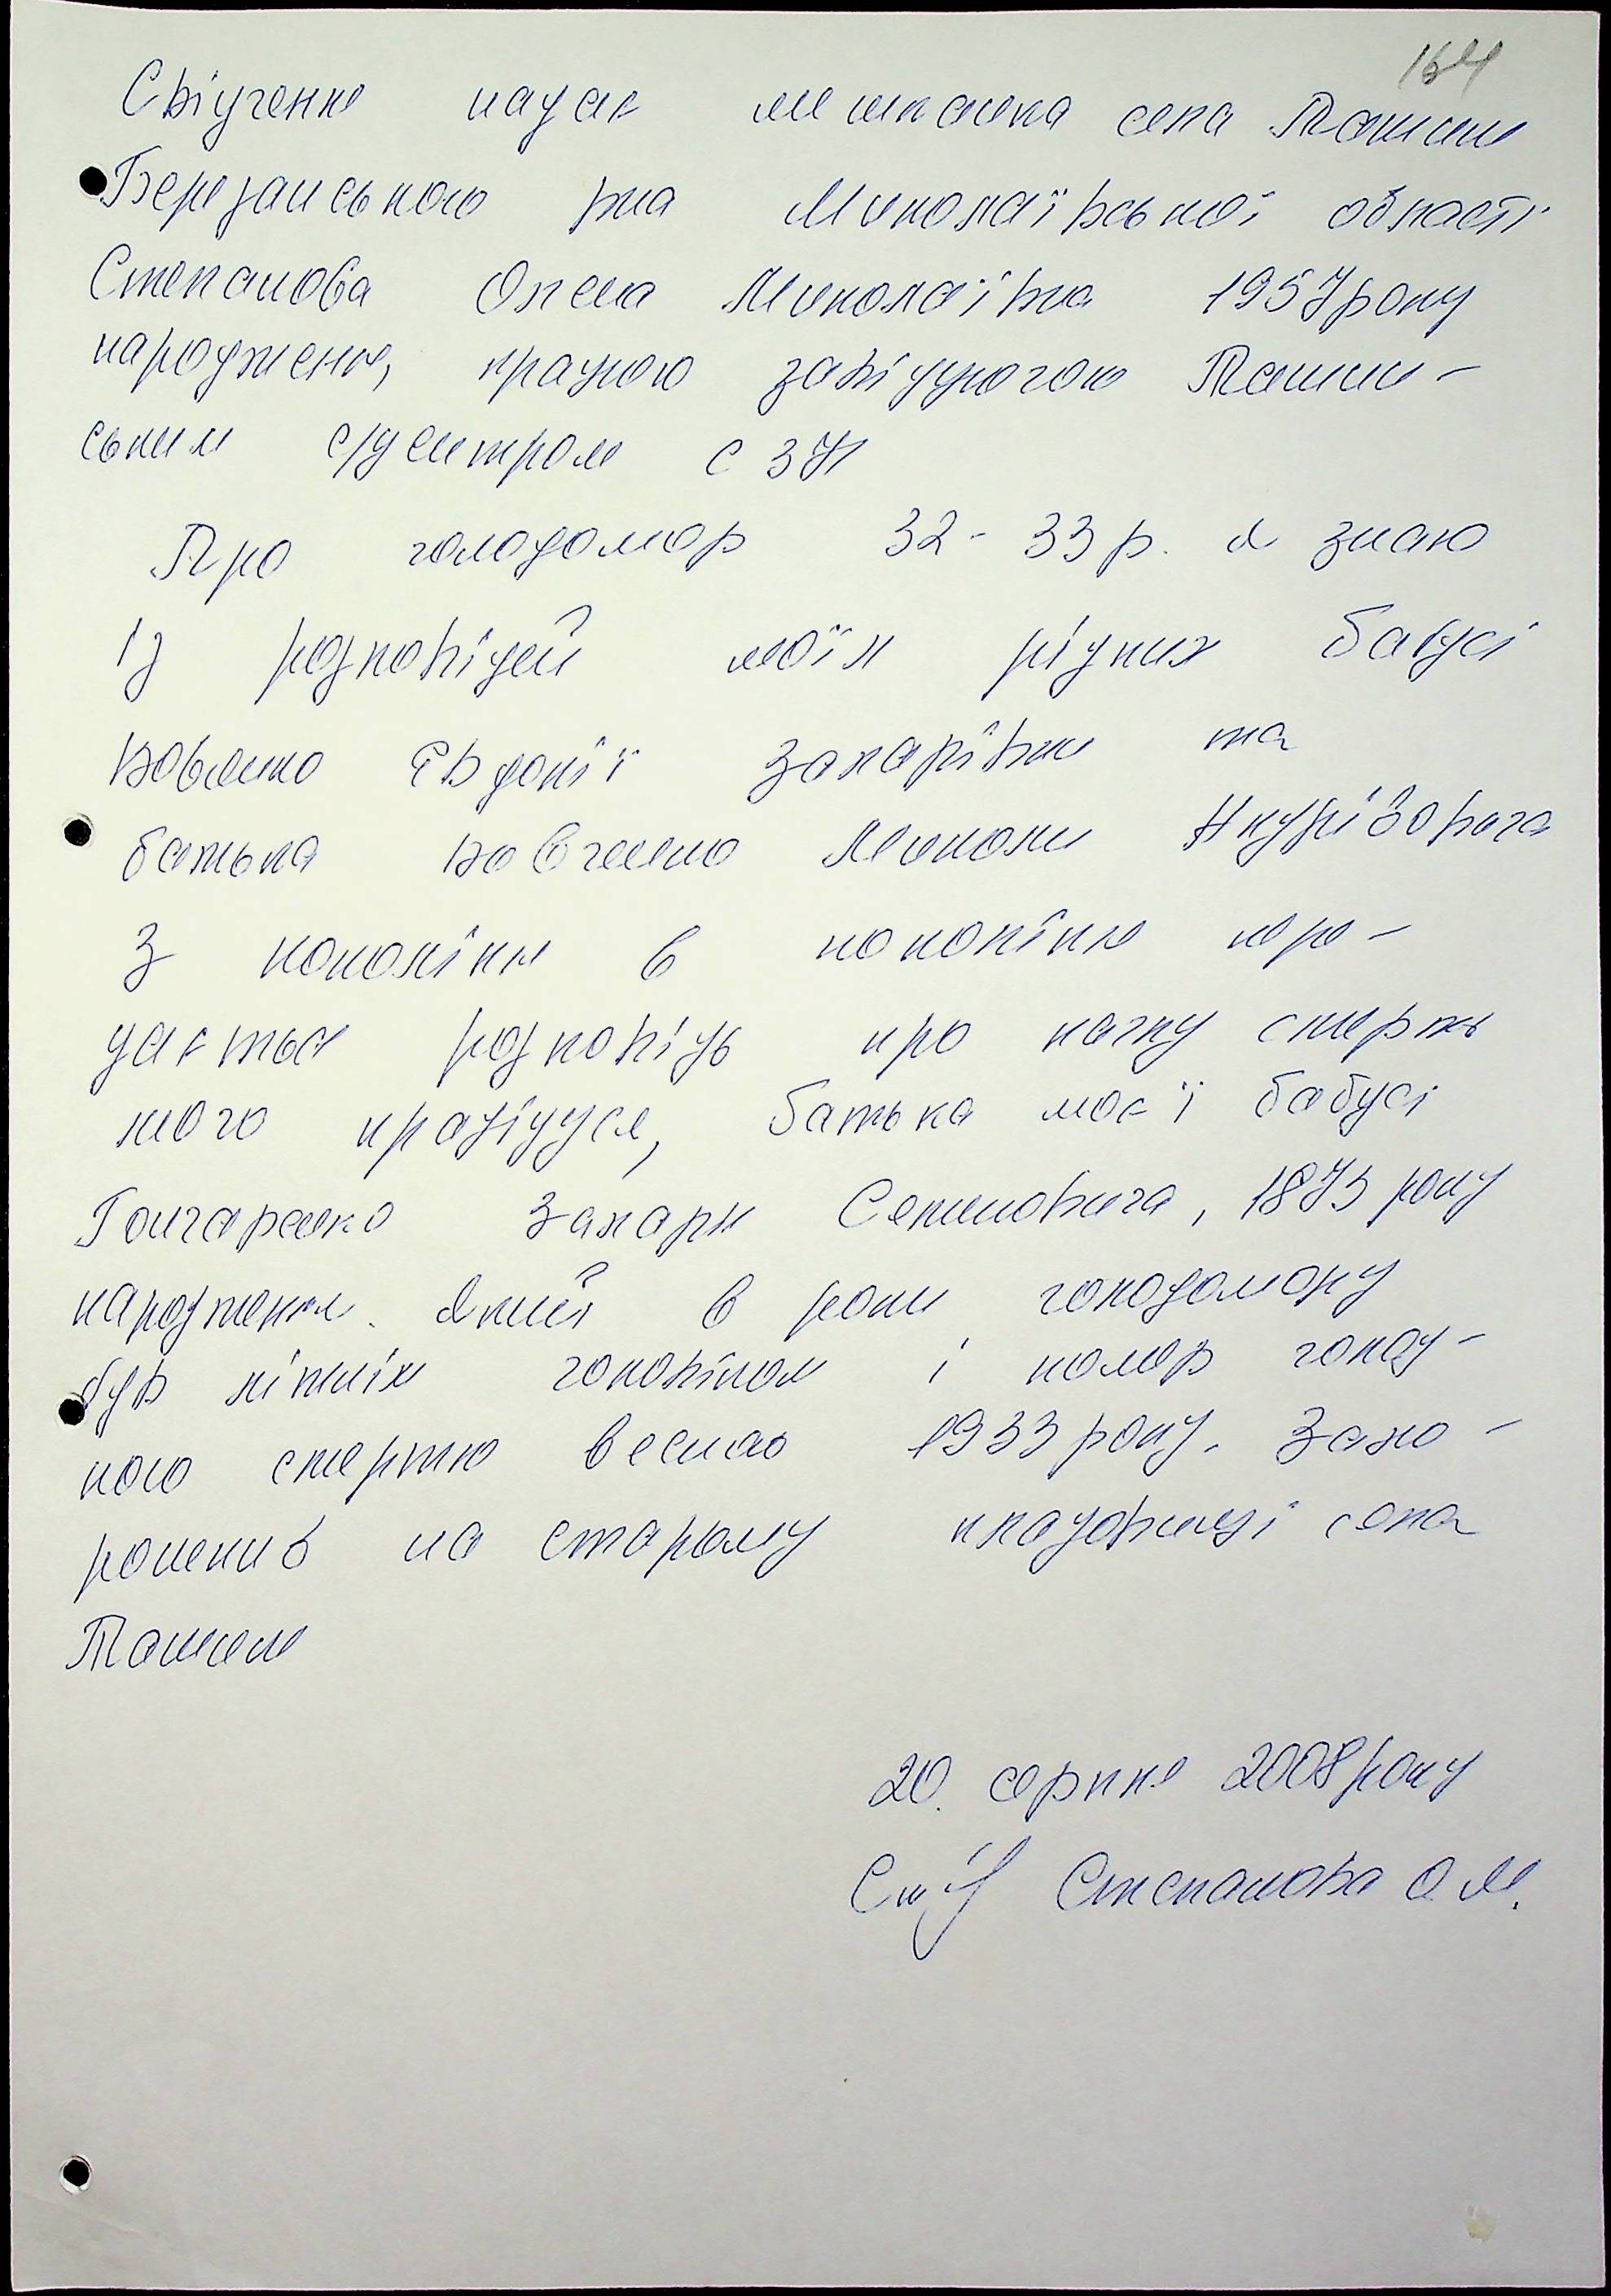 164
Свідчення надає мешканка села Ташине
Березанського р-на Миколаївської області
Степанова Олена Миколаївна 1957 року
народження, працюю завідуючою Ташин-
ським с/центром СЗН
Про голодомор 32-33 р. я знаю
із розповідей моїх рідних бабусі
Вовченко Євдокії Захарівни та
батька Вовченко Миколи
З покоління в покоління пере-
дається розповідь про тяжку смерть
мого прадідуся, батька моєї бабусі
Гончаренко Захара Семеновича, 1873 року
народження. Який в роки голодомору
був літнім чоловіком і помер голод-
ною смертю весною 1933 року. Захо-
ронений на старому кладовищі села
Ташине
20. серпня 2008 року
Степанова О.М.